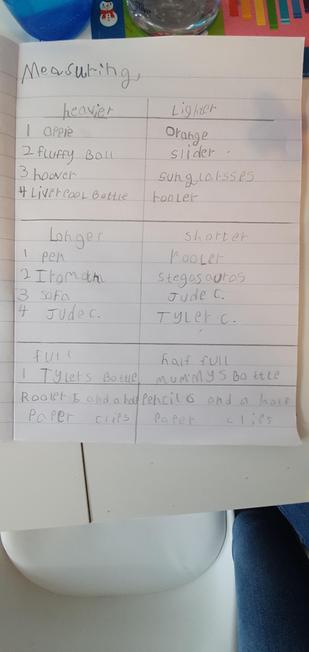 Measuring,
heavier Lighter
1 apple Orange
2 fluffy Ball slider
3 hoover sunglatsses
4 Liverpool Bottle rooler
Longer shorter
1 pen Rooler
2 Stegosauros
3 sofa Jude C.
4 Jude C. TYLer C.
full half full
1 TYLers Bottle MUMMYS Bottle
Rooler 6 and a half Pencil 6 and a half
PaPer clips PaPer clips